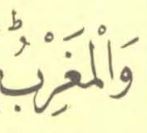 وَالْمَغْرِبُ